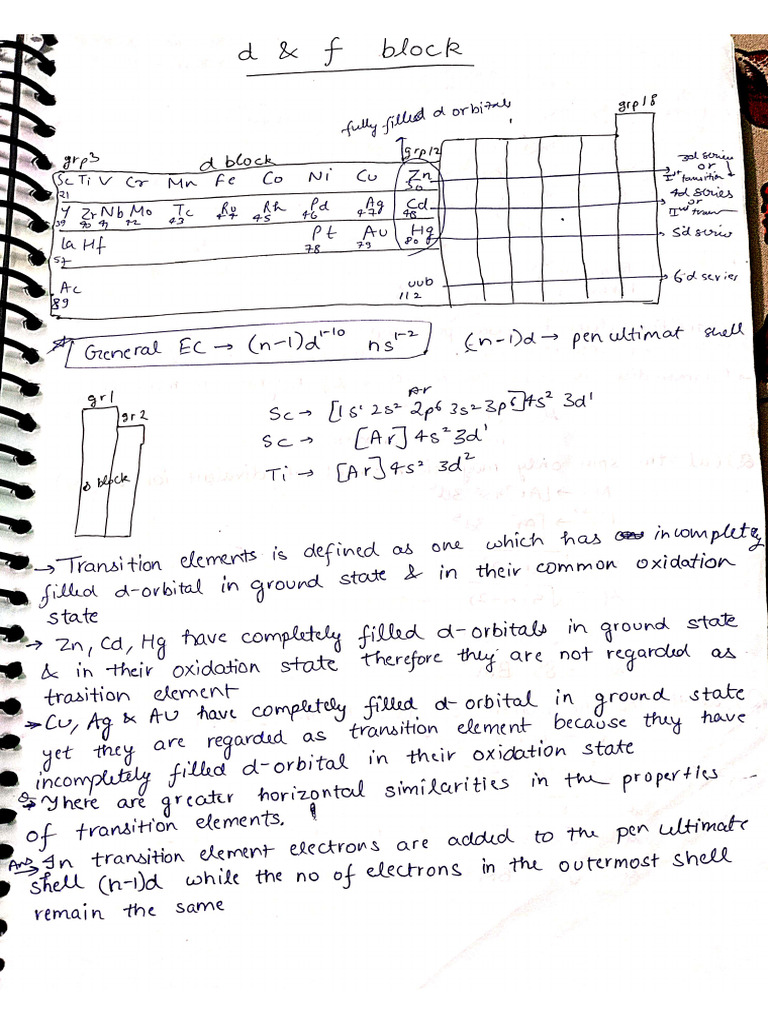 d & f block
fully filled d orbitals
grp 18
grp3
d block
grp12
Sc Ti V Cr Mn Fe Co Ni Cu Zn
21 30
3d series
or
Ist transition
Y Zr Nb Mo Tc Ru Rh Pd Ag Cd
39 40 41 42 43 44 45 46 47 48
4d series
or
IInd tran
La Hf Pt Au Hg
57 78 79 80
5d series
Ac uub
89 112
6d series
General EC → (n-1)d1-10 ns1-2
(n-1)d → pen ultimat shell
gr1
gr2
s block
Ar
Sc → [1s¹ 2s² 2p⁶ 3s² 3p⁶] 4s² 3d¹
Sc → [Ar] 4s² 3d¹
Ti → [Ar] 4s² 3d²
→ Transition elements is defined as one which has incompletely
filled d-orbital in ground state & in their common oxidation
state
→ Zn, Cd, Hg have completely filled d-orbitals in ground state
& in their oxidation state therefore they are not regarded as
trasition element
→ Cu, Ag & Au have completely filled d-orbital in ground state
yet they are regarded as transition element because they have
incompletely filled d-orbital in their oxidation state
There are greater horizontal similarities in the properties
of transition elements.
Ans → In transition element electrons are added to the pen ultimate
shell (n-1)d while the no of electrons in the outermost shell
remain the same